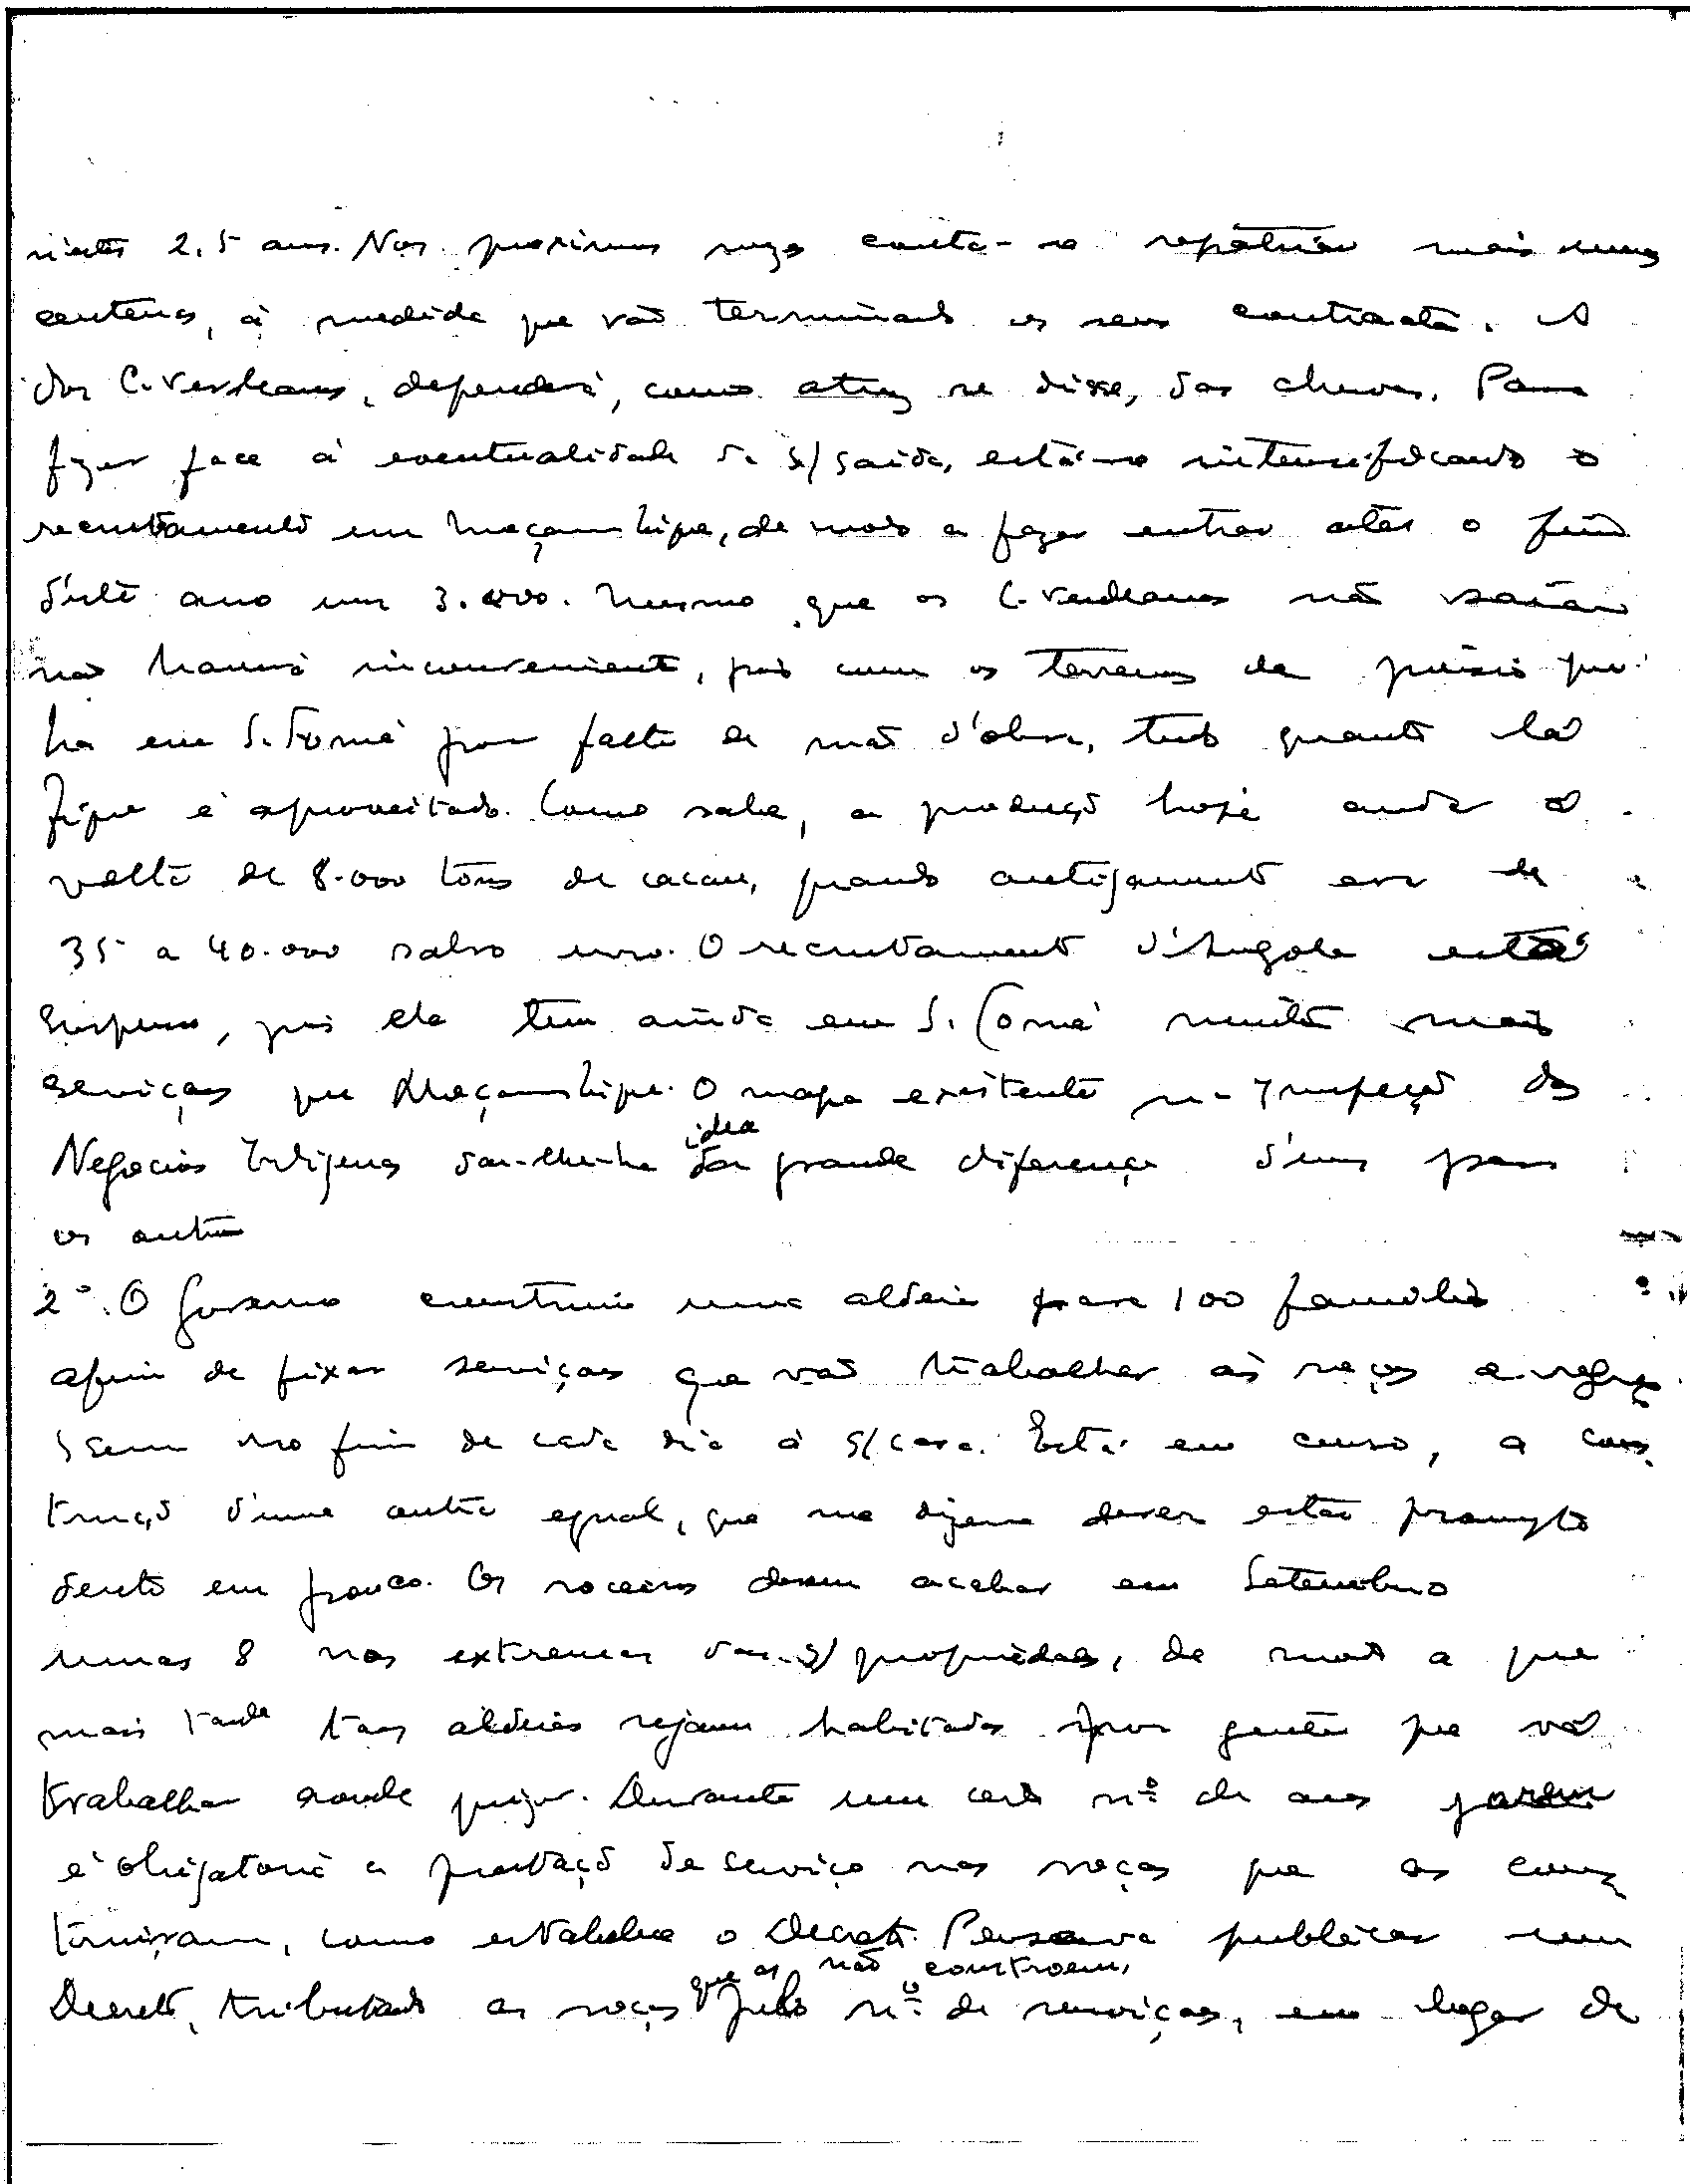 2,5 anos. Nos proximos mezes conta-se repatriar mais umas
centenas, à medida que vão terminando os seus contractos. A
dos C. Verdeanos, dependerá, como atraz se disse, das chuvas. Para
fazer face à eventualidade da s/ saida, está-se intensificando o
recrutamento em Moçambique, de modo a fazer entrar até o fim
d'este ano uns 3.000. Mesmo que os C. Verdeanos não saiam
não haverá inconveniente, pois com os terrenos de pousio que
ha em S. Tomé por falta de mão d'obra, tudo quanto lá
fique é aproveitado. Como sabe, a produção hoje anda à
volta de 8.000 tons de cacau, quando antigamente era de
35 a 40.000 salvo erro. O recrutamento d'Angola está
suspenso, pois ela tem ainda em S. Tomé muito mais
serviçaes que Moçambique. O mapa existente na Inspeção dos
Negocios Indigenas dar-lhe-ha idea da grande diferença d'uns para
os outros
2º. O Governo construiu uma aldeia para 100 familias
afim de fixar serviçaes que vão trabalhar às roças e regres
sem no fim de cada dia à s/ casa. Está em curso, a cons
trução d'uma outra egual, que me dizem dever estar prompta
dentro em pouco. Os roceiros devem acabar em Setembro
umas 8 nos extremos das s/ propriedades, de modo a que
mais tarde taes aldeias sejam habitadas por gente que vá
trabalhar aonde quizer. Durante um certo nº de anos porem
é obrigatoria a prestação de serviço nas roças que as cons
truiram, como estabelece o Decreto. Pensava publicar um
Decreto, tributando as roças que as não construem, pelo nº de serviçaes, em logar de